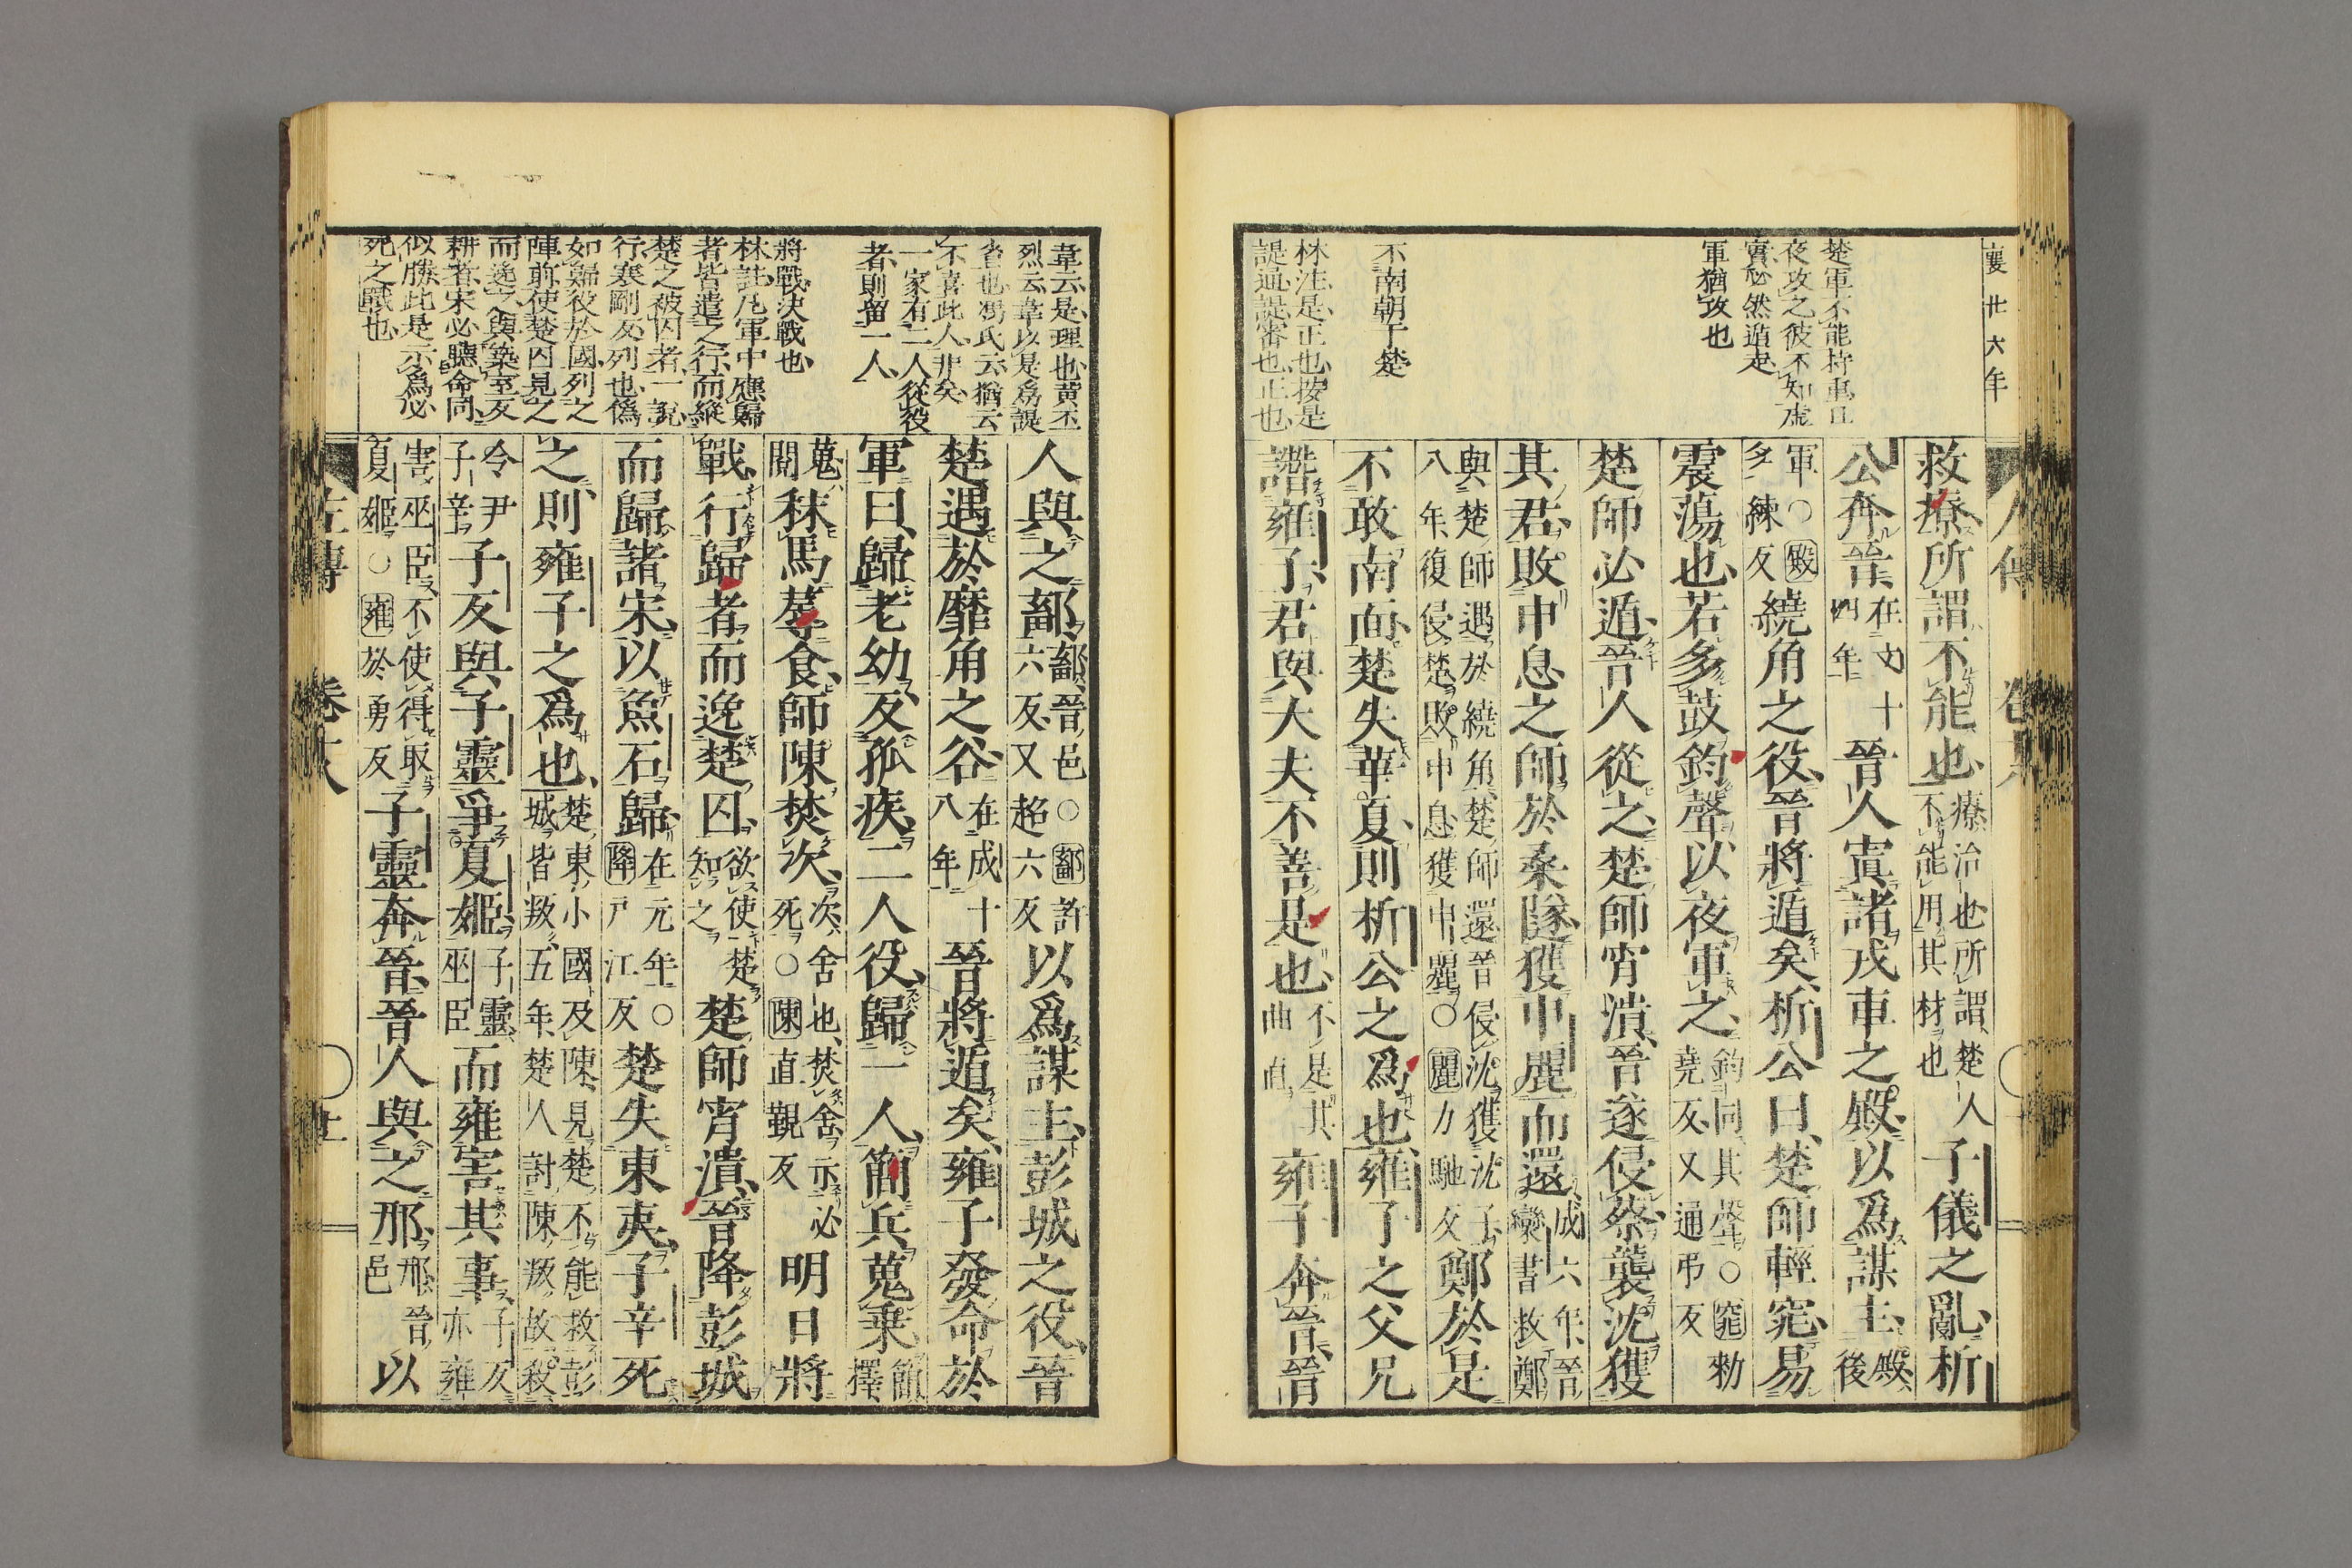 襄廿六年
楚軍不能持重且
夜攻之彼不知虛
實必然遁走
軍猶攻也
不南朝于楚
林注是正也按是
諟通諟審也正也
救療所謂不能也療治也所謂楚人不能用其材也子儀之亂析
公奔晉在文十四年晉人寘諸戎車之殿以爲謀主殿後
軍○殿多練反繞角之役晉將遁矣析公曰楚師輕窕易
震蕩也若多鼓鈞聲以夜軍之鈞同其聲○窕勑堯反又通弔反
楚師必遁晉人從之楚師宵潰晉遂侵蔡襲沈獲
其君敗申息之師於桑隧獲申麗而還成六年晉欒書救鄭
與楚師遇於繞角楚師還晉侵沈獲沈子八年復侵楚敗申息獲申麗○麗力馳反鄭於是
不敢南面楚失華夏則析公之爲也雍子之父兄
譖雍子君與大夫不善是也不是其曲直雍子奔晉晉
韋云是理也黃丕
烈云韋以是爲諟
省也馮氏云猶云
不喜此人非矣
一家有二人從役
者則留一人
將戰決戰也
林註凡軍中應歸
者皆遣之行而縱
楚之被囚者一說
行寒剛反列也僞
如歸役於國列之
陣前使楚囚見之
而逸入與築室反
耕者宋必聽命同
似勝此是示爲必
死之戰也
人與之鄐鄐晉邑○鄐許六反又超六反以爲謀主彭城之役晉
楚遇於靡角之谷在成十八年晉將遁矣雍子發命於
軍曰歸老幼反孤疾二人役歸一人簡兵蒐乘簡擇
蒐閱秣馬蓐食師陳焚次次舍也焚舍示必死○陳直覲反明日將
戰行歸者而逸楚囚欲使楚知之楚師宵潰晉降彭城
而歸諸宋以魚石歸在元年○降戶江反楚失東夷子辛死
之則雍子之爲也楚東小國及陳見楚不能救彭城皆叛五年楚人討陳叛故殺
令尹子辛子反與子靈爭夏姬子靈巫臣而雍害其事子反亦雍
害巫臣不使得取夏姬○雍於勇反子靈奔晉晉人與之邢邢晉邑以
左傳　卷十八